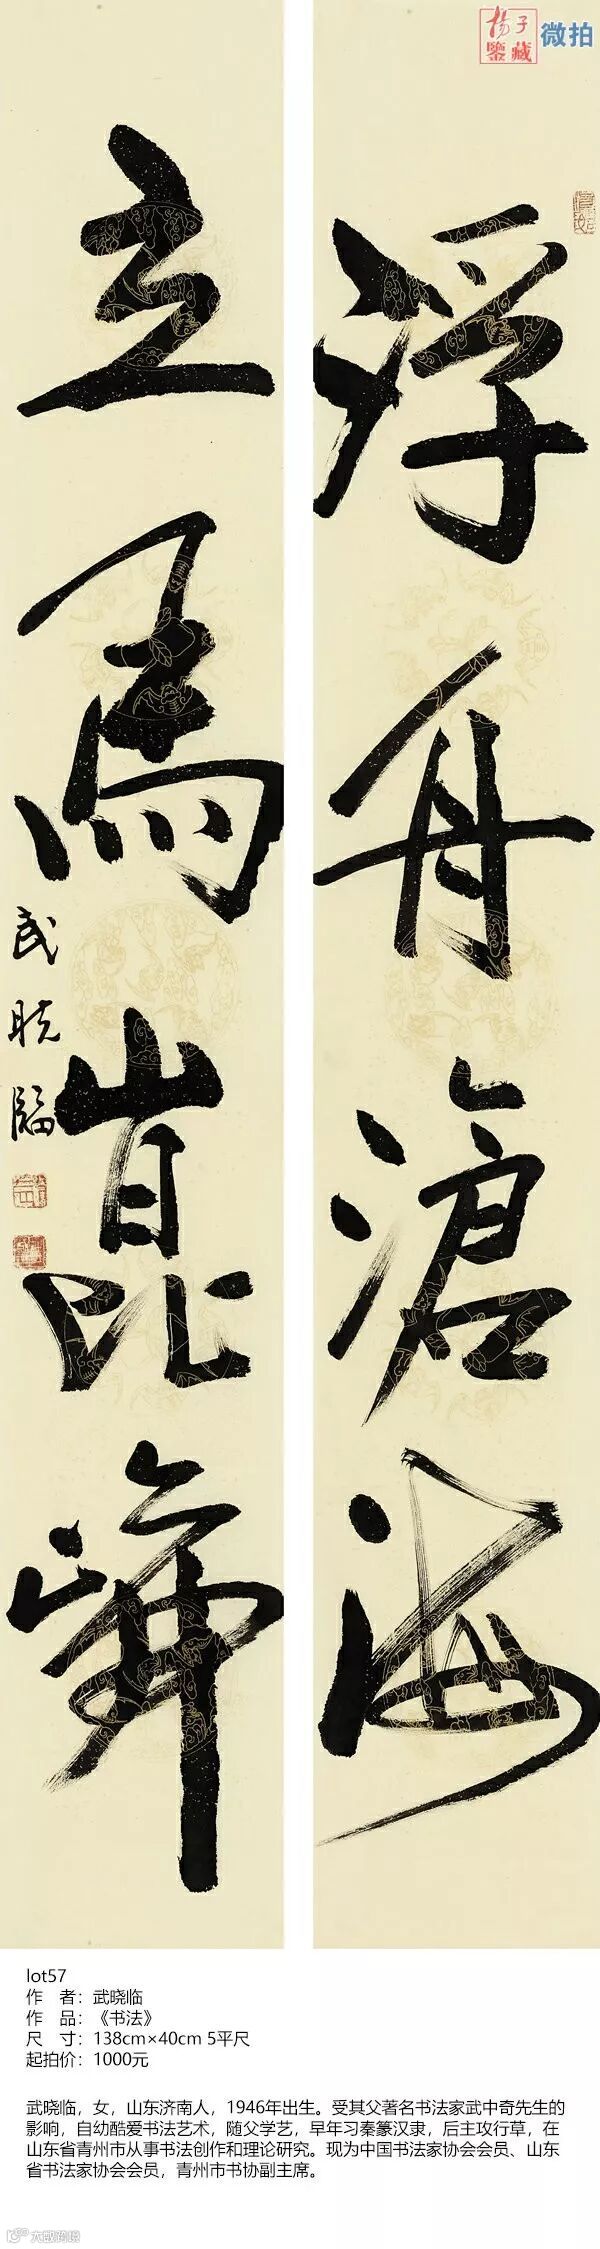 揚子
鑒藏
微拍
浮舟滄海
立馬崑崙
武晓临
lot57
作 者：武晓临
作 品：《书法》
尺 寸：138cm×40cm 5平尺
起拍价：1000元
武晓临，女，山东济南人，1946年出生。受其父著名书法家武中奇先生的
影响，自幼酷爱书法艺术，随父学艺，早年习秦篆汉隶，后主攻行草，在
山东省青州市从事书法创作和理论研究。现为中国书法家协会会员、山东
省书法家协会会员，青州市书协副主席。
大感跨境